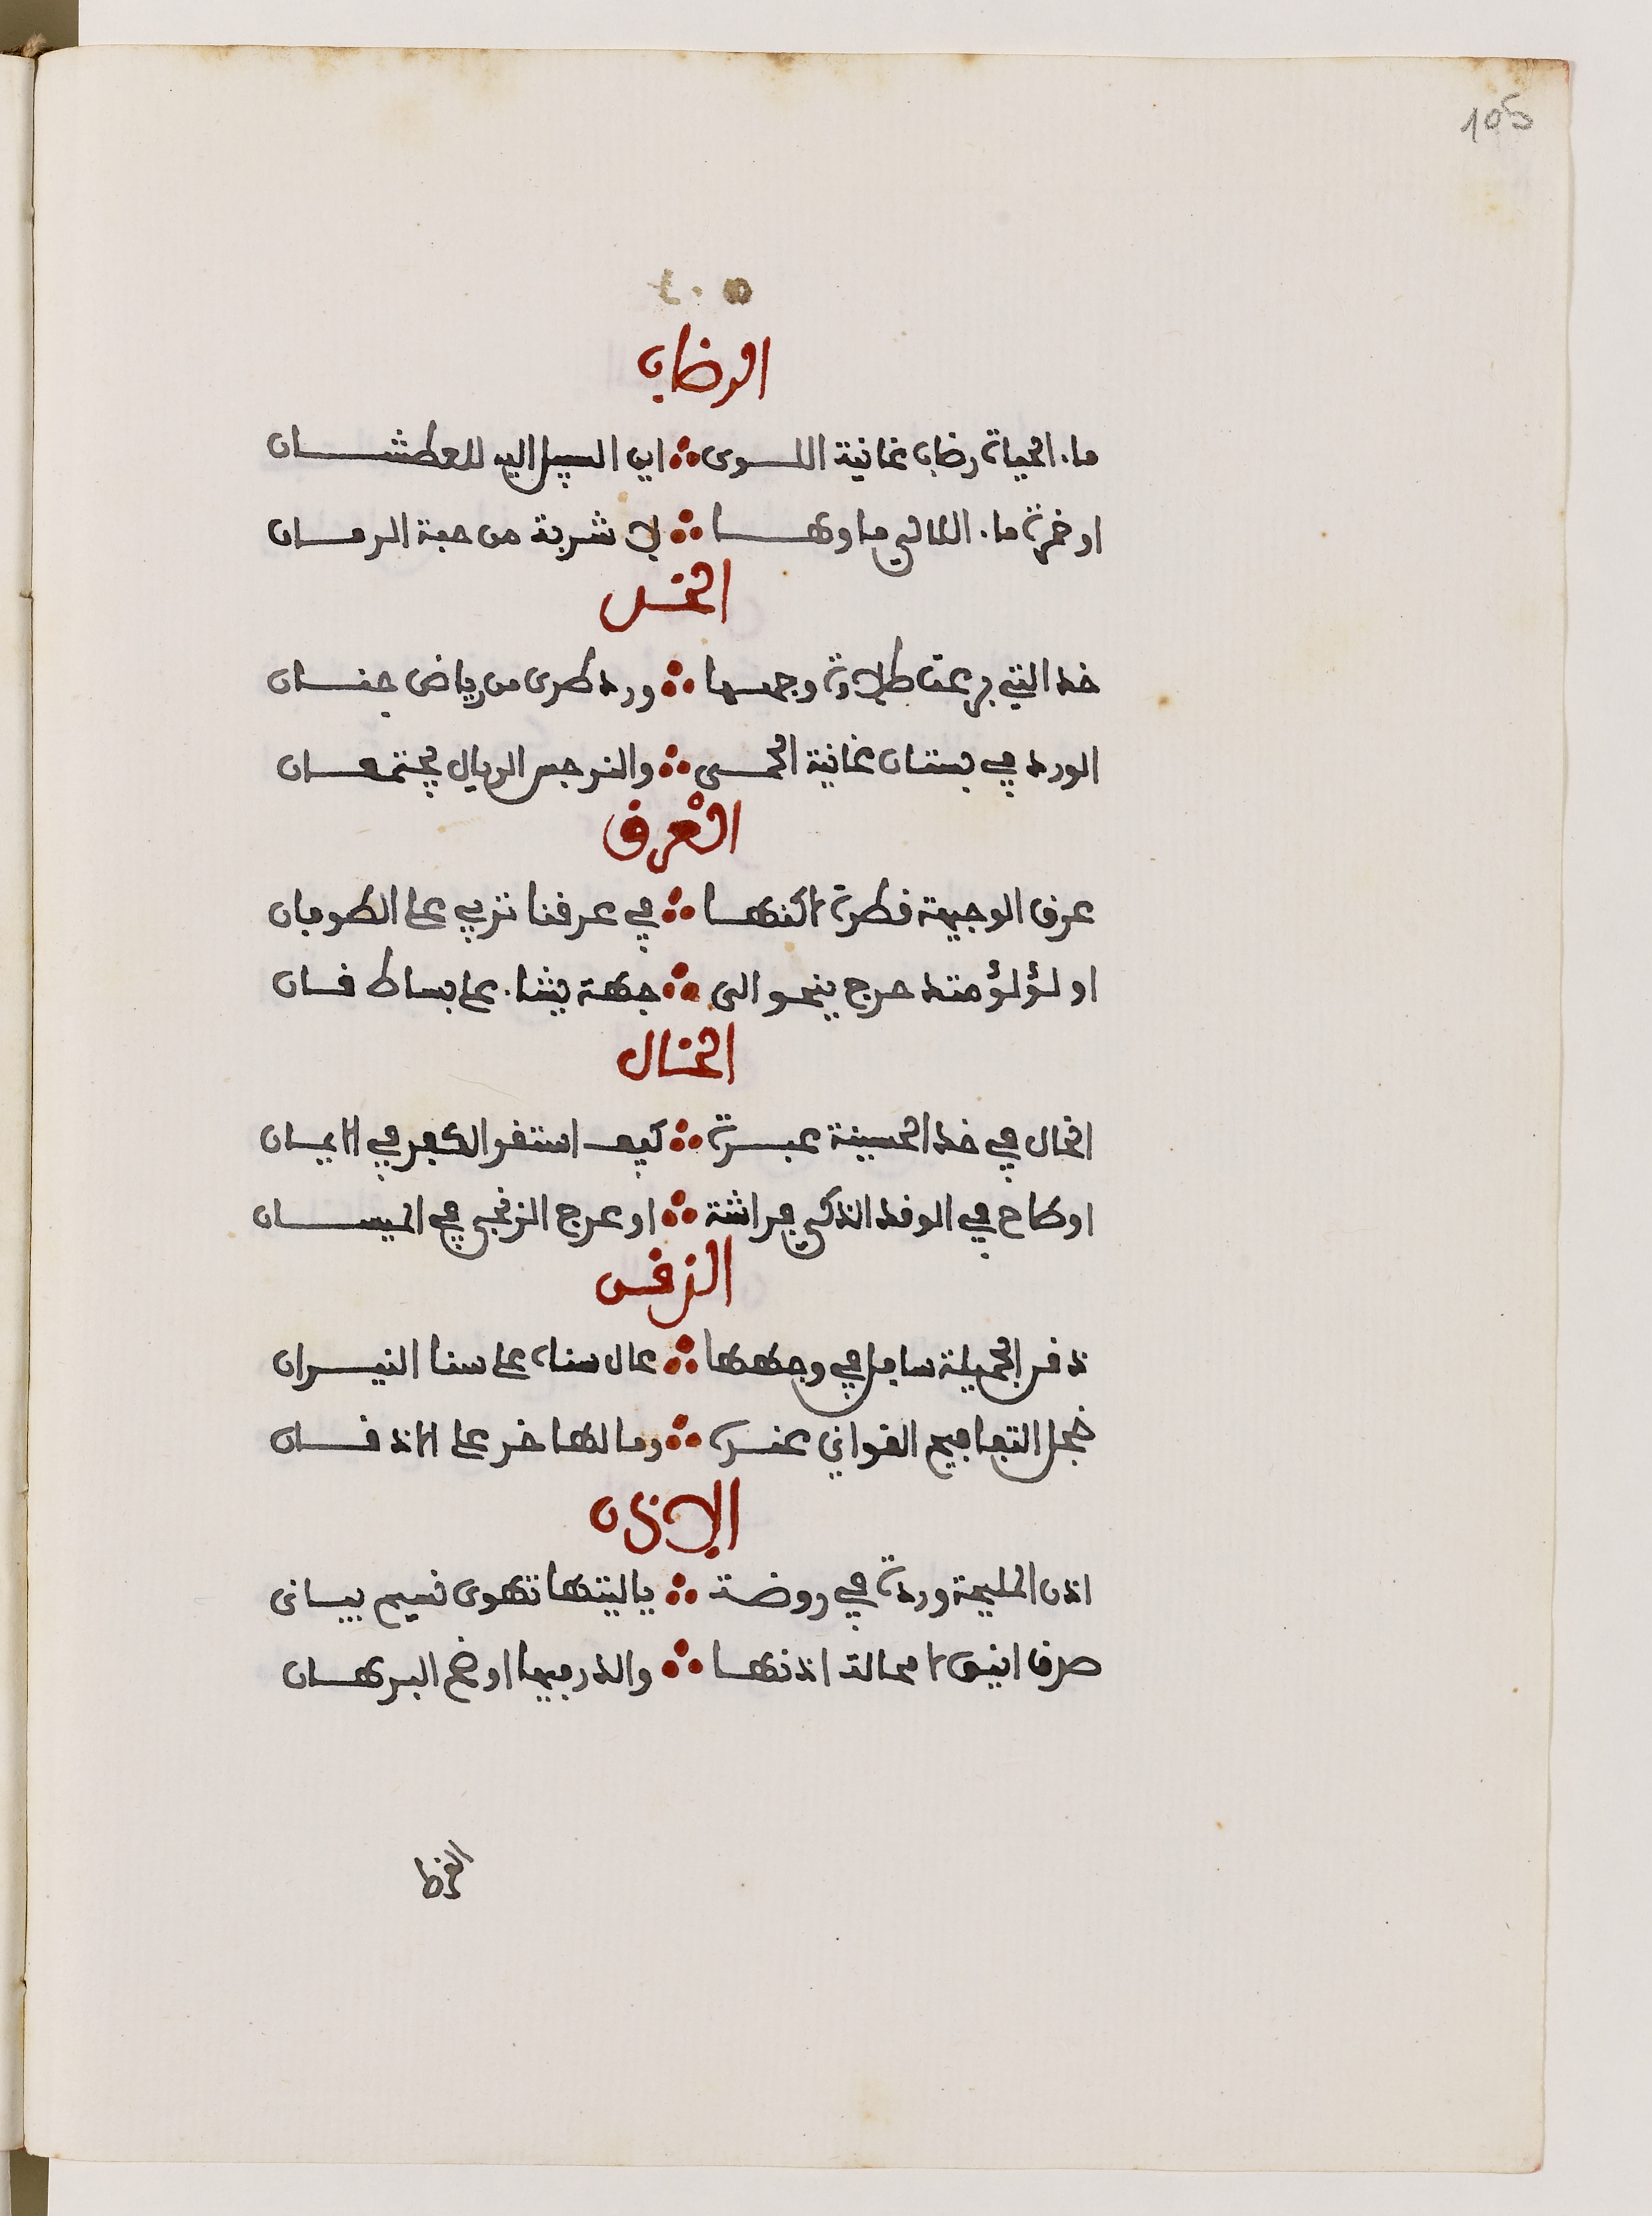 105
الرضاب
ماء الحياة رضاب غانية اللوى ∴ اين السبيل اليه للعطشان
او خمرة ماء اللالي ماوها ∴ لا شربة من حبة الرمان
الخد
خد التي برعت طلاوة وجهها ∴ ورد طرى من رياض جنان
الورد في بستان غانية الحمى ∴ والنرجس الريان يجتمعان
العرق
عرق الوجيهة قطرة لاكنها ∴ في عرفنا تربي على الطوفان
او لؤلؤ متدحرج ينحو الى ∴ جهة يشاء على بساط قان
الخال
الخال في خد الحسينة عبرة ∴ كيف استقر الكفر في الايمان
او طاح في الوقد الذكي فراشة ∴ او عرج الزنجي في الميسان
الذقن
ذقن الجميلة سافل في وجهها ∴ عال سناه على سنا النيران
خجل التفافيح الغواني عنده ∴ ومالها خر على الاذقان
الاذن
اذن المليحة وردة في روضة ∴ ياليتها تهوى نسيم بيانى
صدف انيق لا محالة اذنها ∴ والدر فيها اوضح البرهان
القرط